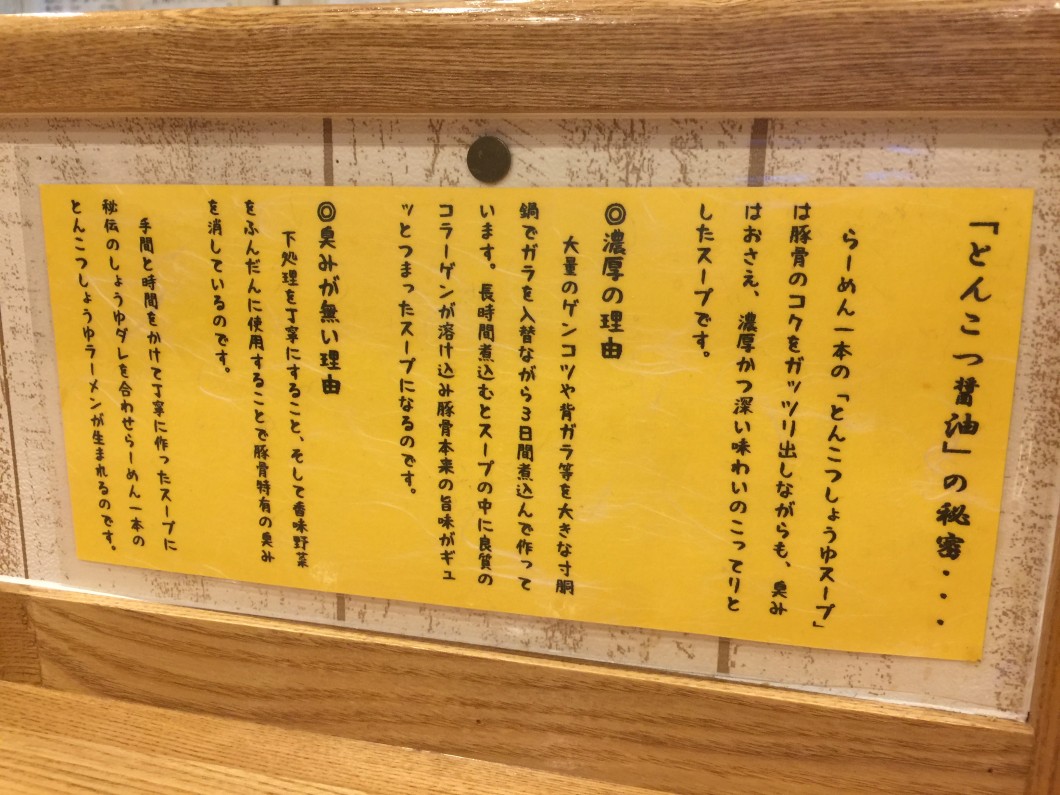 「とんこつ醤油」の秘密・・・
らーめん一本の「とんこつしょうゆスープ」
は豚骨のコクをガッツリ出しながらも、臭み
はおさえ、濃厚かつ深い味わいのこってりと
したスープです。
◎濃厚の理由
大量のゲンコツや背ガラ等を大きな寸胴
鍋でガラを入替ながら3日間煮込んで作って
います。長時間煮込むとスープの中に良質の
コラーゲンが溶け込み豚骨本来の旨味がギュ
ッとつまったスープになるのです。
◎臭みが無い理由
下処理を丁寧にすること、そして香味野菜
をふんだんに使用することで豚骨特有の臭み
を消しているのです。
手間と時間をかけて丁寧に作ったスープに
秘伝のしょうゆダレを合わせらーめん一本の
とんこつしょうゆラーメンが生まれるのです。